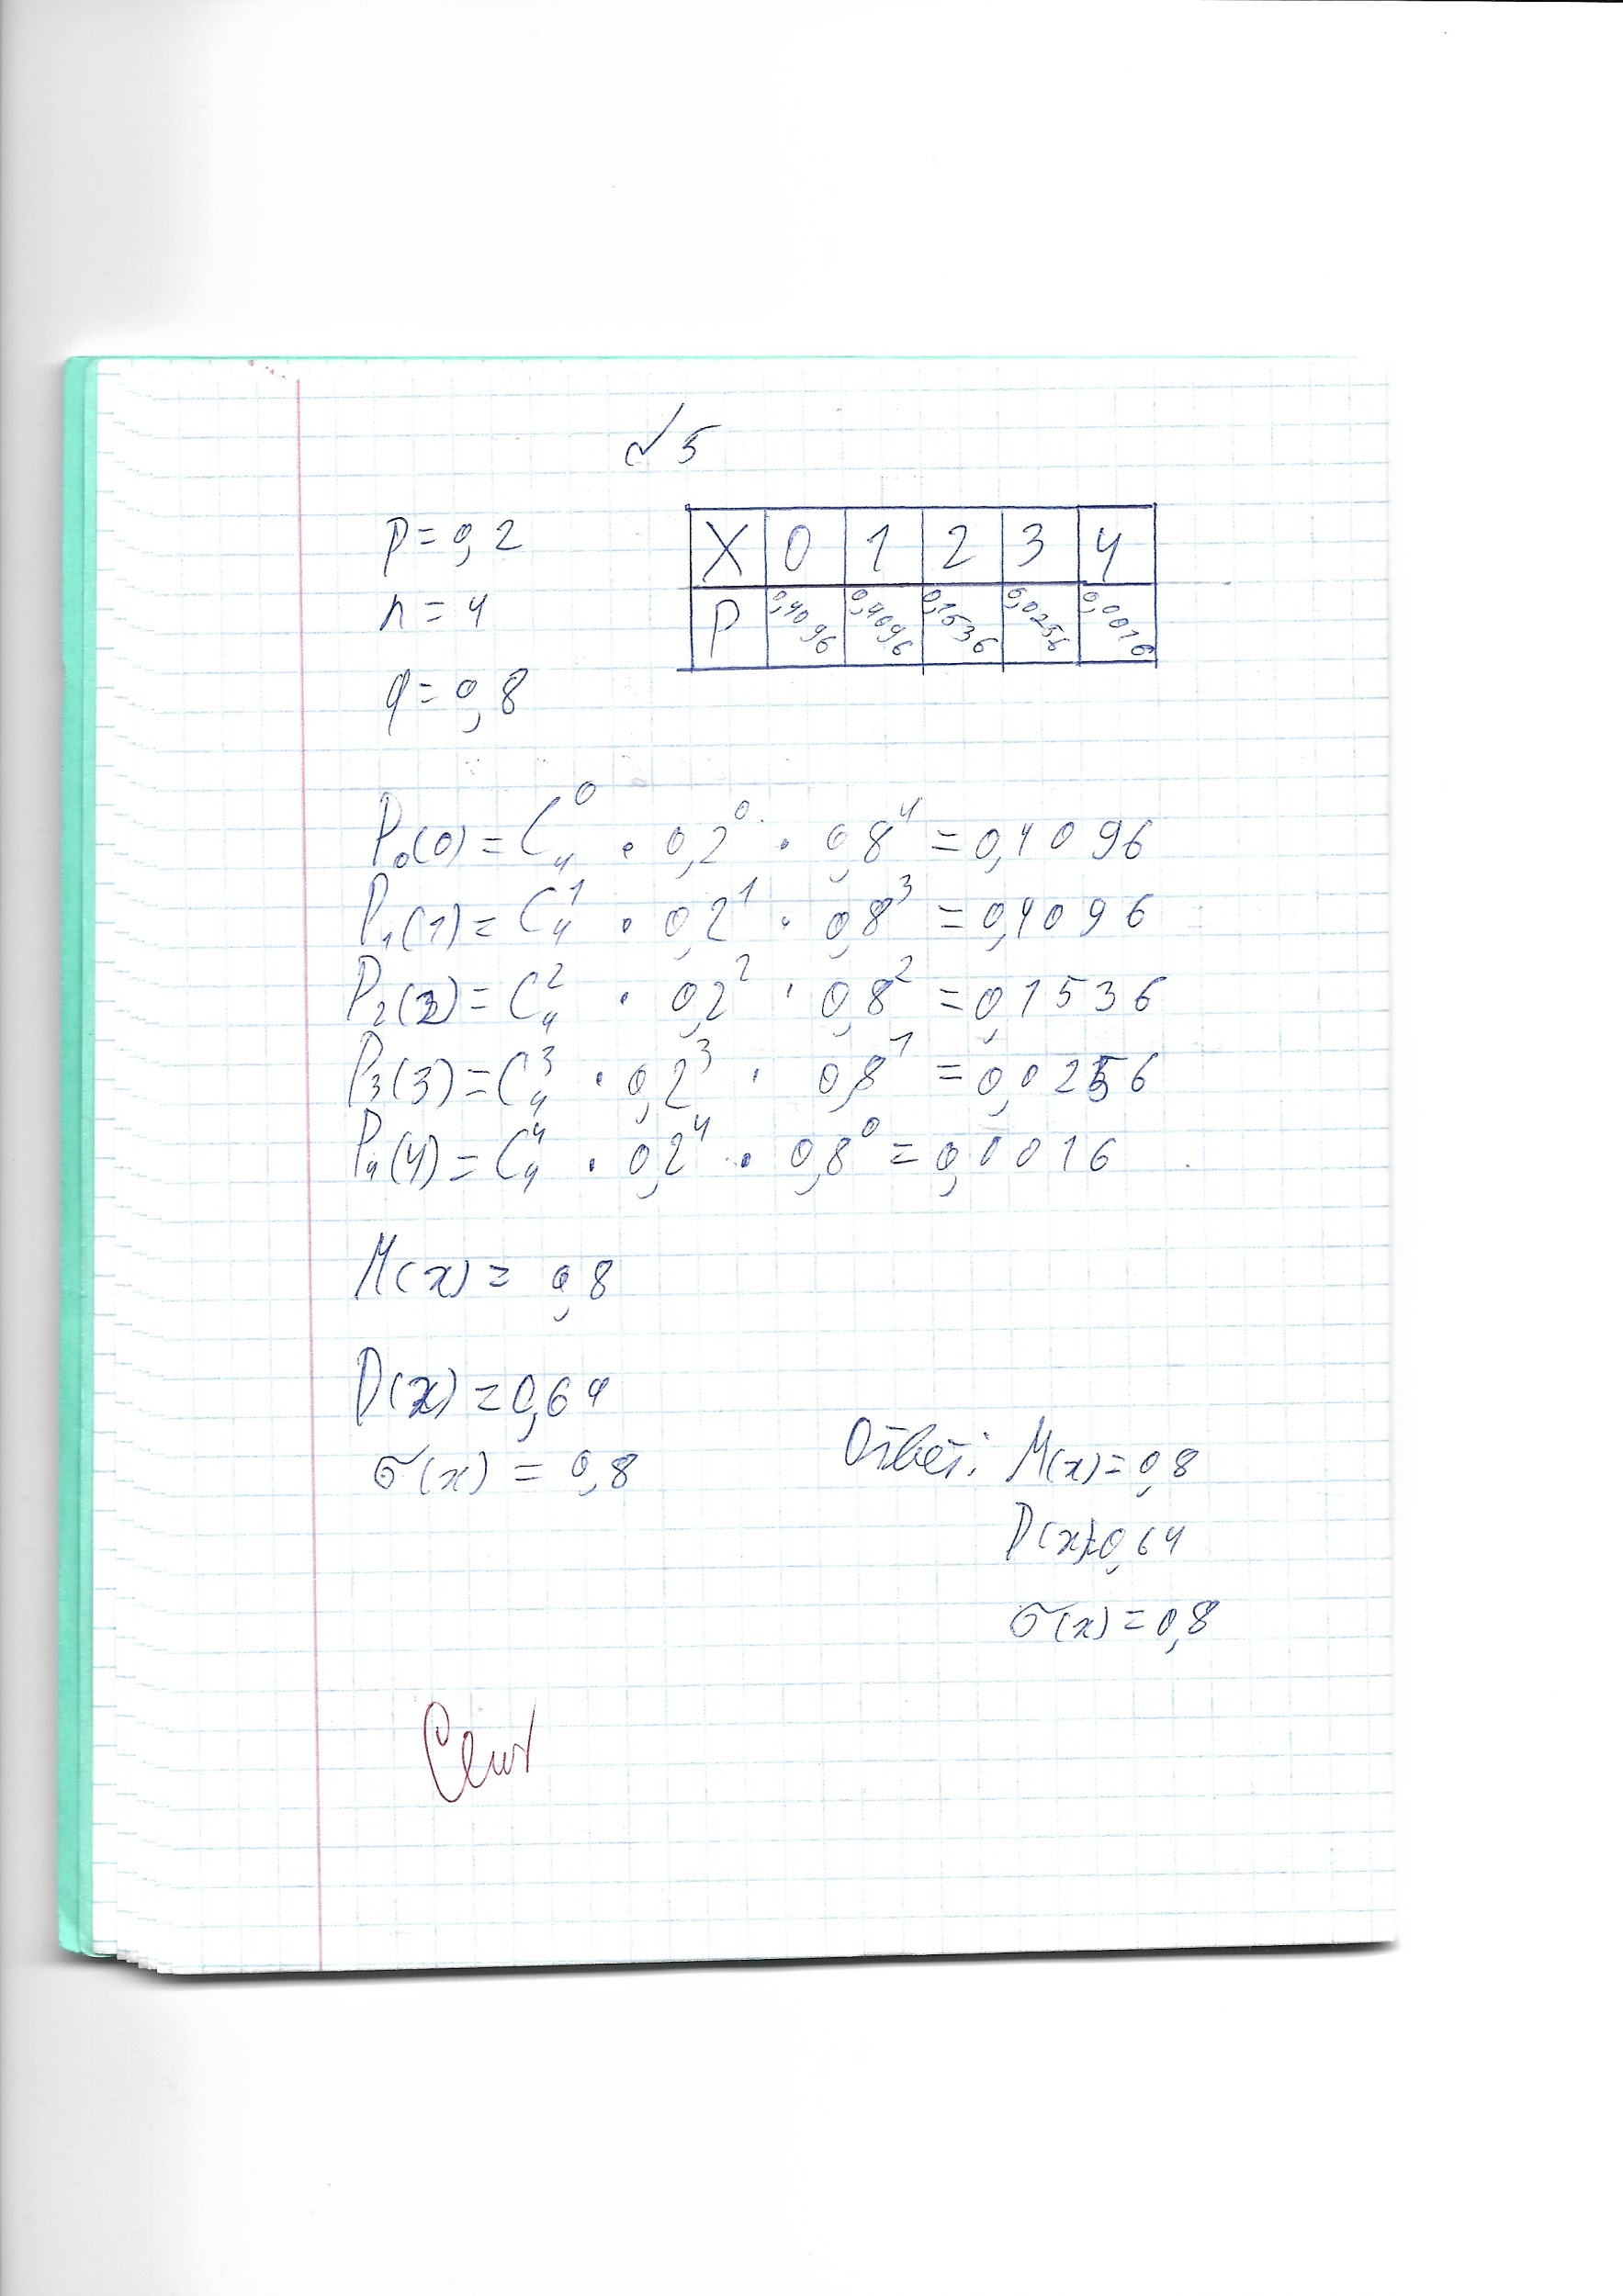 №5
p = 0,2
n = 4
q = 0,8
X 0 1 2 3 4
P 0,4096 0,4096 0,1536 0,0256 0,0016
P₀(0) = C₄⁰ · 0,2⁰ · 0,8⁴ = 0,4096
P₁(1) = C₄¹ · 0,2¹ · 0,8³ = 0,4096
P₂(2) = C₄² · 0,2² · 0,8² = 0,1536
P₃(3) = C₄³ · 0,2³ · 0,8¹ = 0,0256
P₄(4) = C₄⁴ · 0,2⁴ · 0,8⁰ = 0,0016
M(x) = 0,8
D(x) = 0,64
σ(x) = 0,8
Ответ: M(x) = 0,8
D(x) = 0,64
σ(x) = 0,8